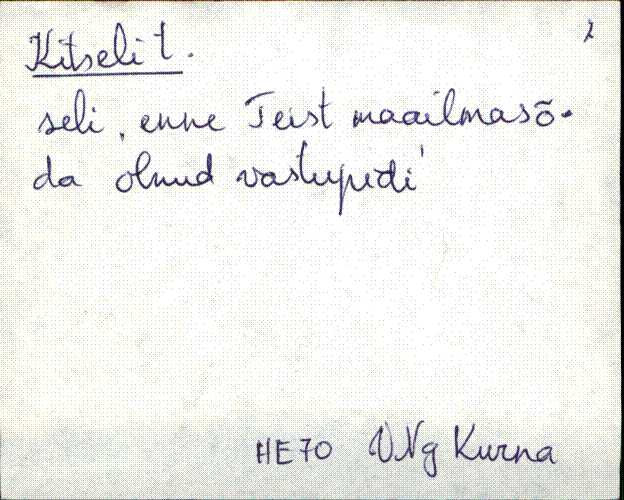 2
Kitseli t.
seli, enne Teist maailmasõ-
da olnud vastupidi'
HE70 VNg Kurna